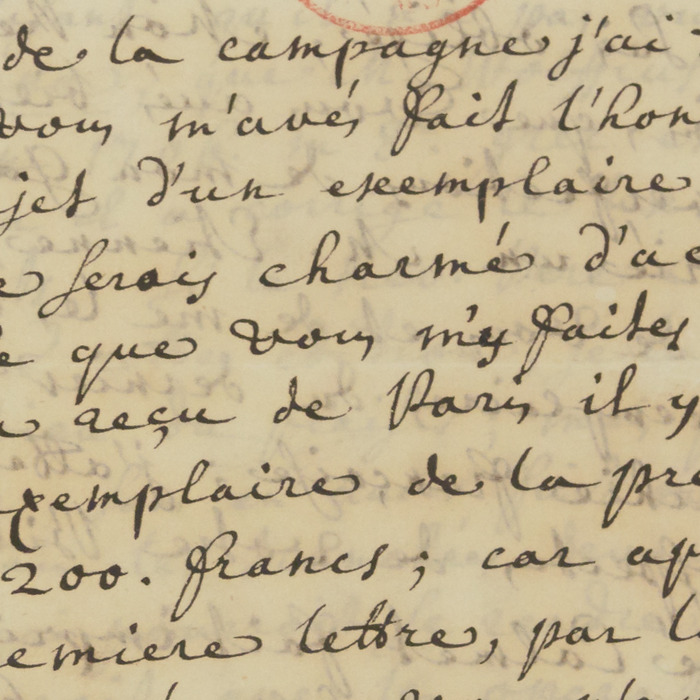 de la campagne j'ai
vous m'avés fait l'hon
jet d'un exemplaire
e serois charmé d'ac
e que vous m'y faites
a reçu de Paris il y
exemplaire de la pre
200. francs; car ap
emiere lettre, par l